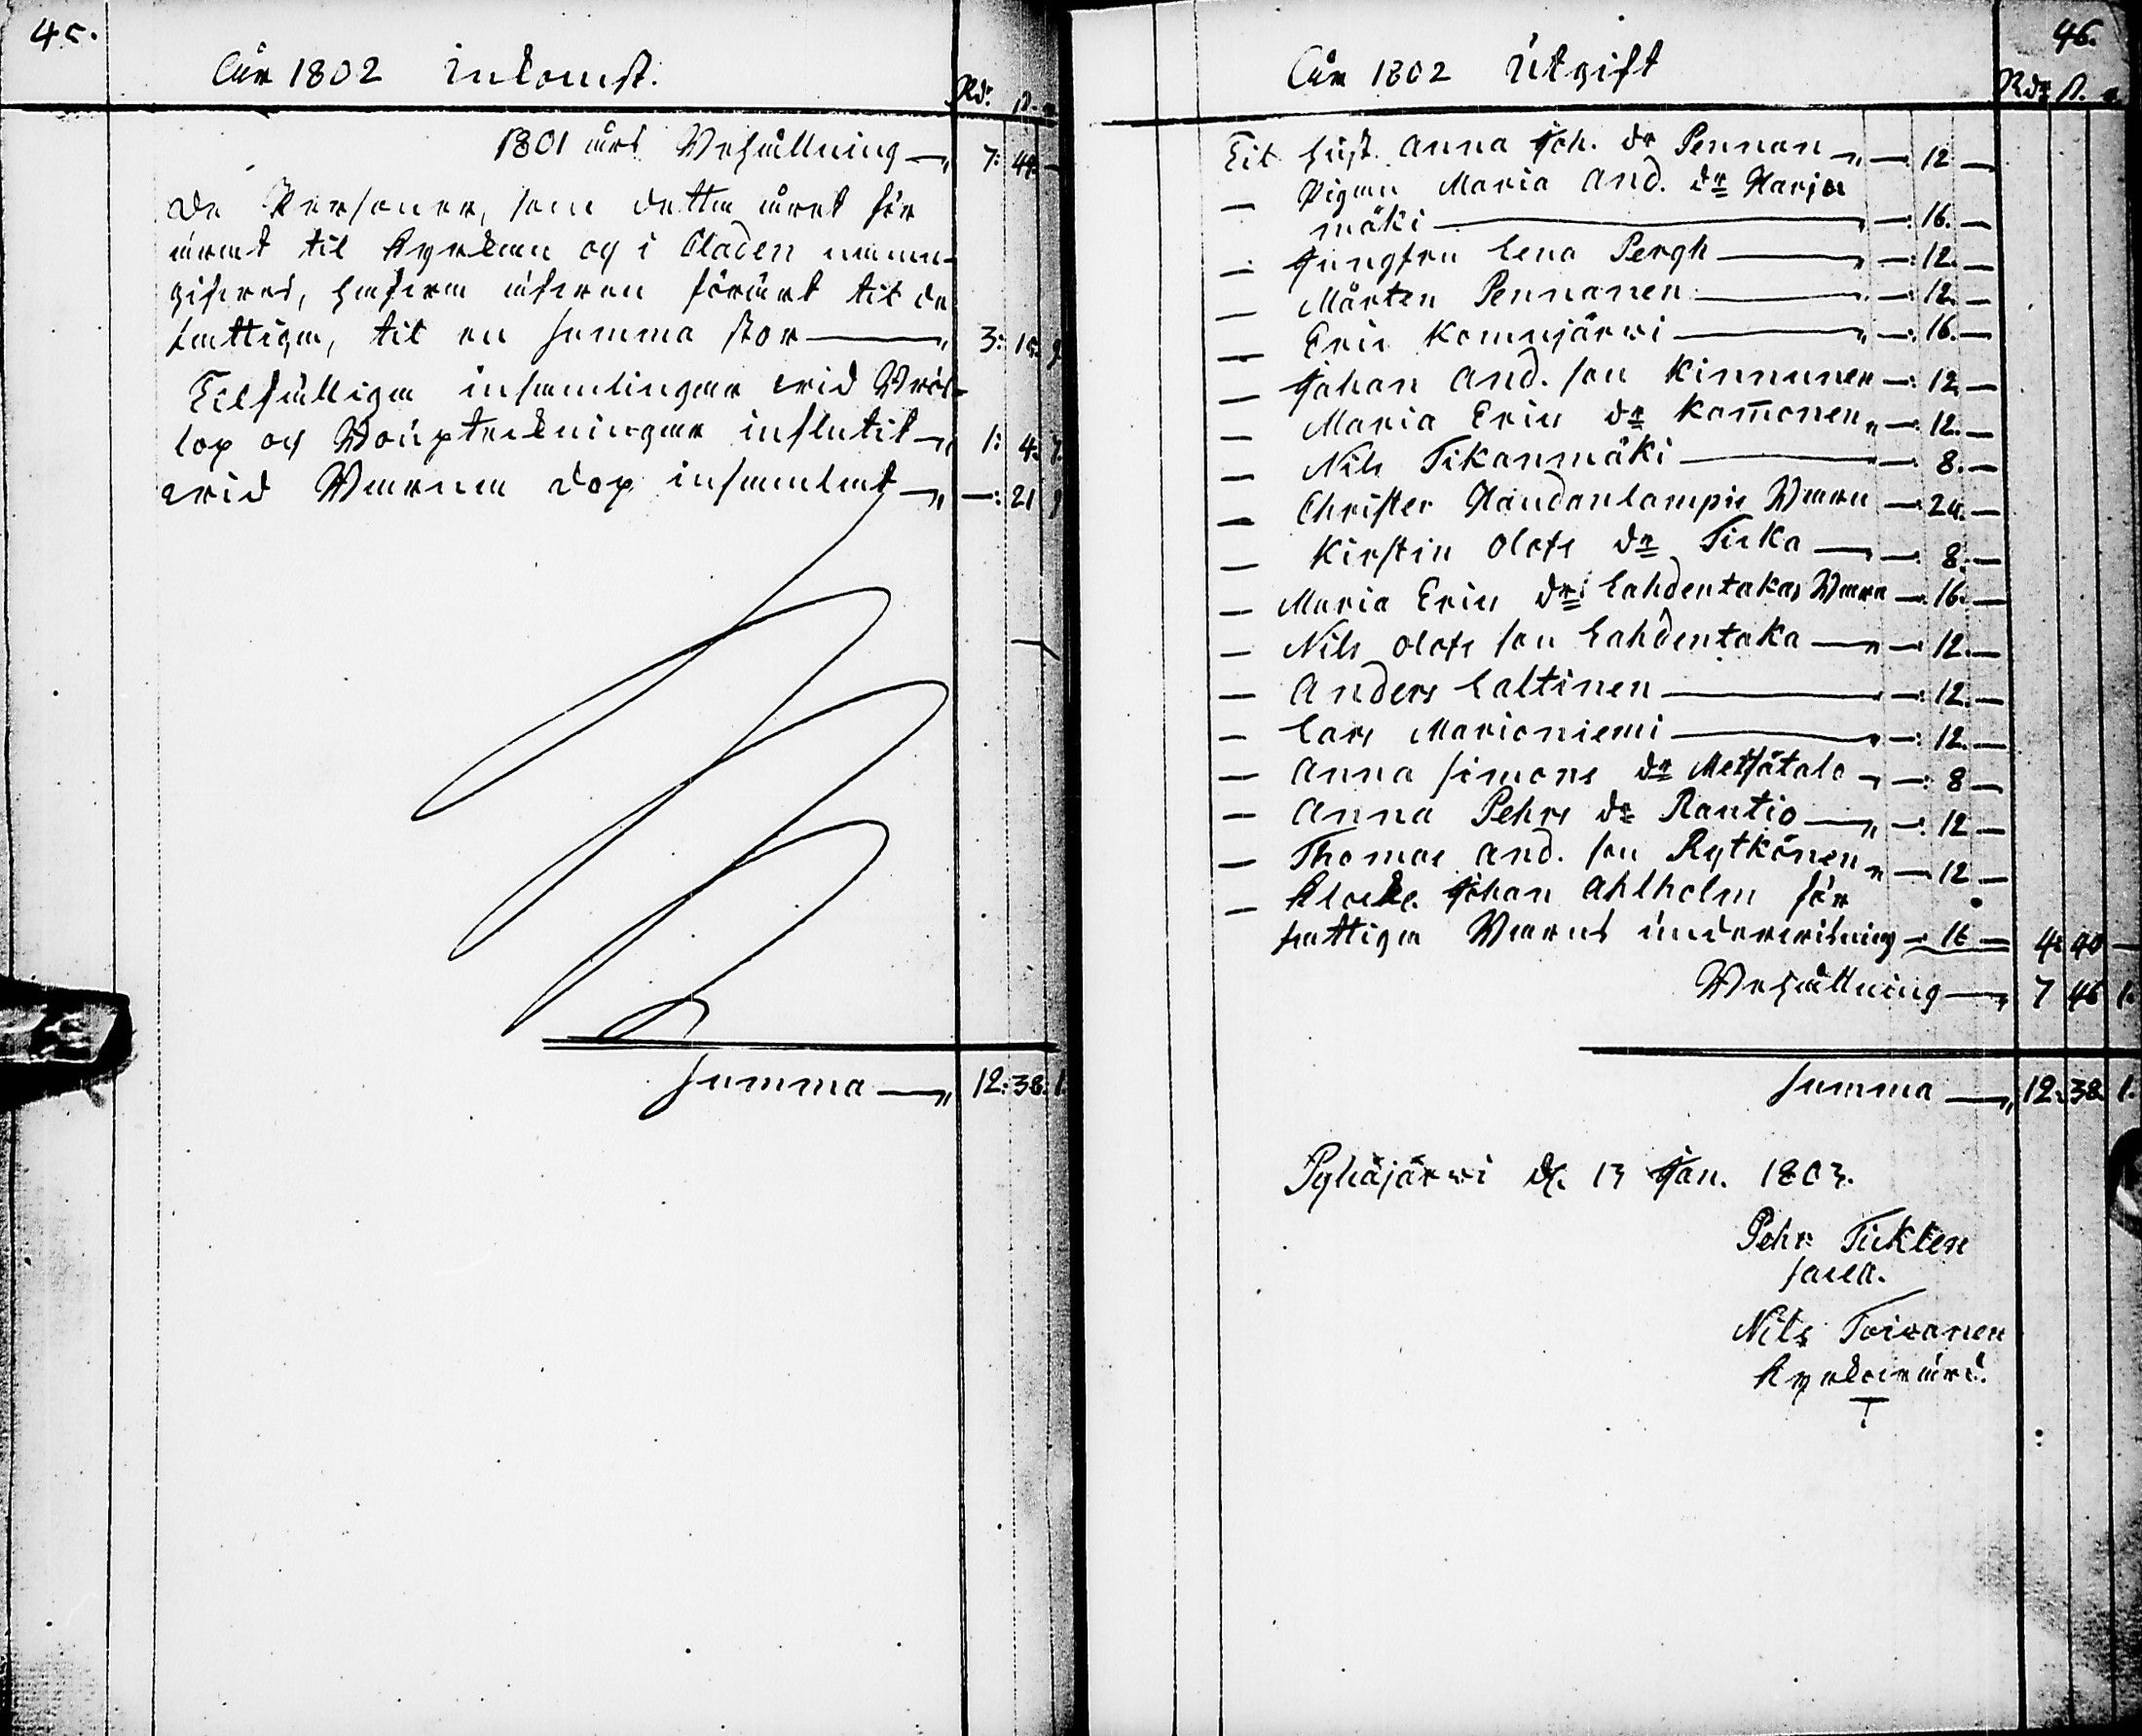 45.
Åhr 1802 Inkomst.
Rdr. ß.
1801 års Behållning — 7: 44. —
De Personer, som detta året för
ärat til Kyrkan och i Claden namn-
gifves, hafva äfven förärt til de
fattiga, til en summa stor — 3: 15. 9
Tilfälliga insamlingar wid Bröl-
lop och Wouptekningar influtit — 1: 4. 7.
wid Barna dop insamlat — —: 21 9
Summa — 12: 38: 1.
46.
Åhr 1802 Utgift
Rdr ß.
Til hust. Anna Joh. dr Pennan — 12 —
— Pigan Maria And. dr Harja
mäki — 16. —
— Jungfru Lena Bergh — 12. —
— Mårten Pennanen — 12. —
— Eric Komujärwi — 16. —
— Johan And. son Kinnunen — 12 —
— Maria Erics dr Kommonen — 12. —
— Nils Tikanmäki — 8. —
— Christer Haudanlampis Barn — 24. —
— Kirstin Olofs dr Ticka — 8. —
— Maria Erics drs Lahdentakas Barn — 16. —
— Nils Olofs son Lahdentaka — 12. —
— Anders Laltinen — 12. —
— Lars Marioniemi — 12. —
— Anna Simons dr Metsätalo — 8 —
— Anna Pehrs dr Rautio — 12 —
— Thomas And. son Rytkönen — 12 —
— Klock. Johan Ahlholm för
fattiga Barns underwisning — 16 — 4: 40 —
Behållning — 7 46 1.
Summa — 12. 38. 1.
Pyhäjärwi d. 13 Jan. 1803.
Pehr Ticklen
Sacell.
Nils Toiwanen
Kyrkowärd.